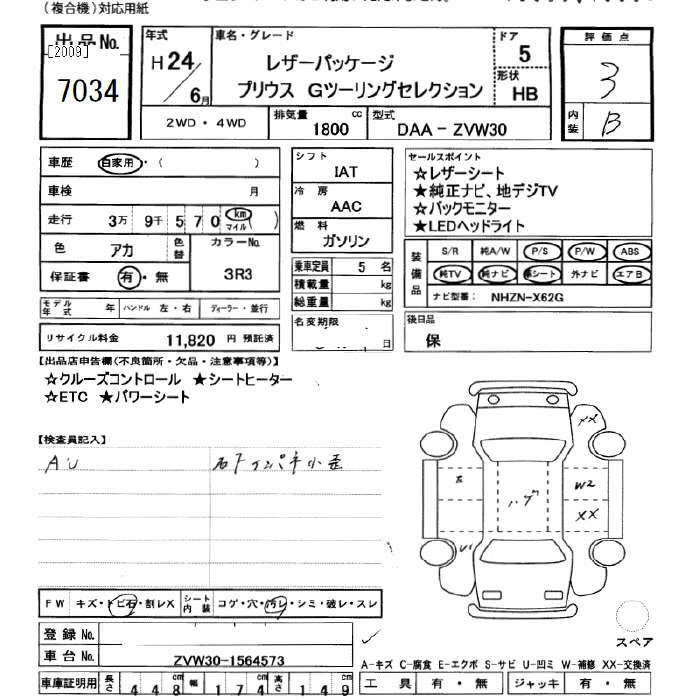 (複合機)対応用紙
出品No.
[2009]
7034
年式
H24/6月
車名・グレード
レザーパッケージ
プリウス Gツーリングセレクション
ドア
5
形状
HB
評価点
3
内装
B
2WD・4WD
排気量
1800 cc
型式
DAA-ZVW30
車歴
自家用・( )
車検
月
走行
3万 9千 5 7 0 km マイル ( )
色
アカ
色替
カラーNo.
3R3
保証書
有・無
モデル年式
年
ハンドル 左・右
ディーラー・並行
リサイクル料金
11,820 円 預託済
シフト
IAT
冷房
AAC
燃料
ガソリン
乗車定員
5 名
積載量
kg
総重量
kg
名変期限
日
セールスポイント
☆レザーシート
★純正ナビ、地デジTV
☆バックモニター
★LEDヘッドライト
装備品
S/R 純A/W P/S P/W ABS
純TV 純ナビ 革シート 外ナビ エアB
ナビ型番: NHZN-X62G
後日品
保
【出品店申告欄(不良箇所・欠品・注意事項等)】
☆クルーズコントロール ★シートヒーター
☆ETC ★パワーシート
【検査員記入】
AU
右Fインパネ小歪
XX
W2
XX
ハゲ
U1
FW
キズ・トビ石・割レX
シート内装
コゲ・穴・汚レ・シミ・破レ・スレ
登録No.
車台No.
ZVW30-1564573
車庫証明用
長さ
448 cm
幅
174 cm
高さ
149 cm
スペア
A-キズ C-腐食 E-エクボ S-サビ U-凹ミ W-補修 XX-交換済
工具
有・無
ジャッキ
有・無